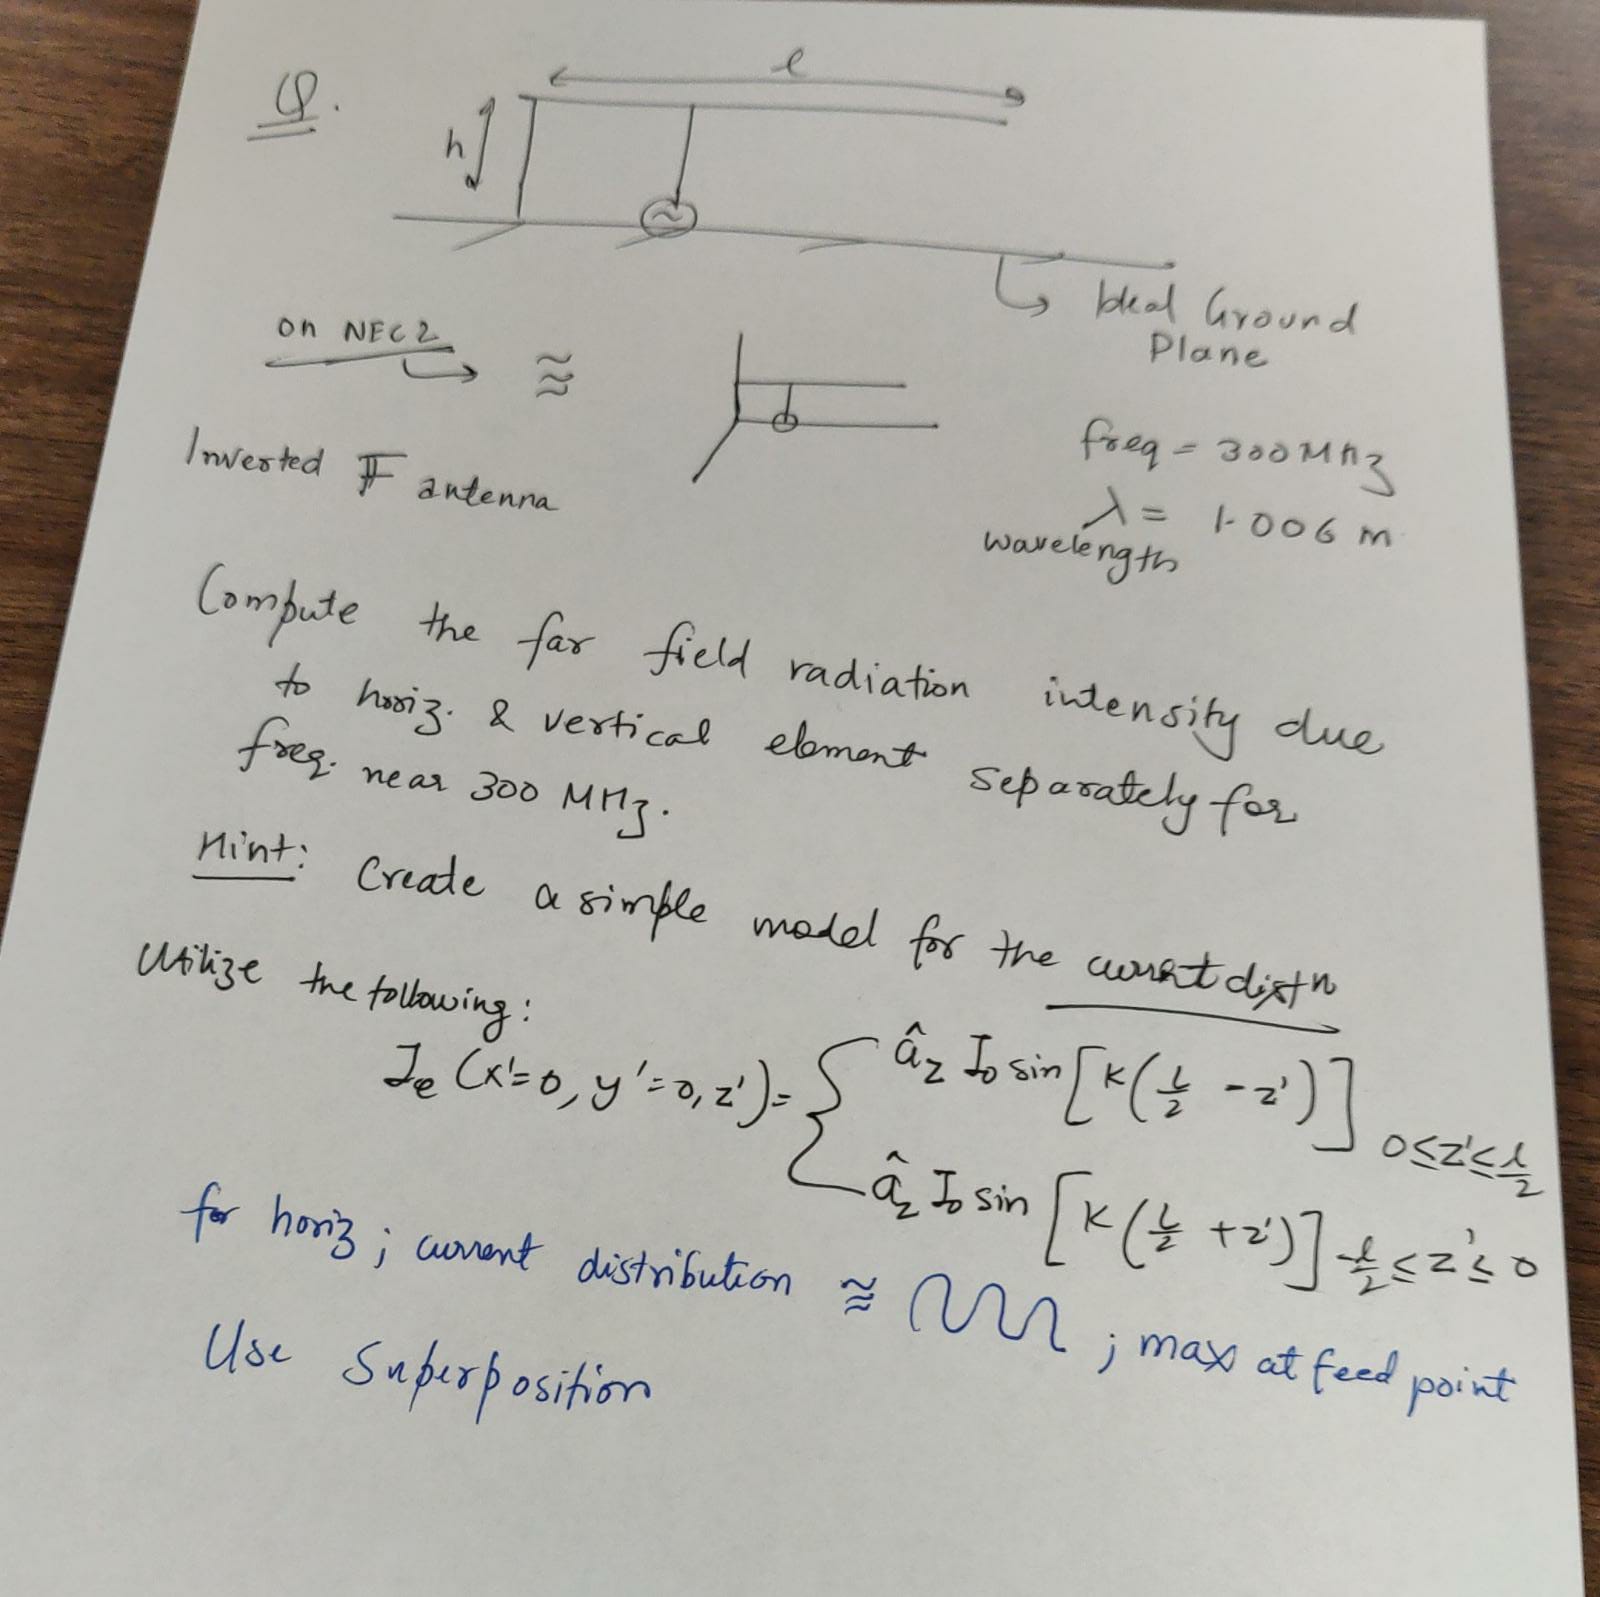 Q.
l
h
Ideal Ground
Plane
on NEC2
≈
Inverted F antenna
freq = 300 MHz
λ = 1.006 m
wavelength
Compute the far field radiation intensity due
to horiz. & vertical element separately for
freq. near 300 MHz.
Hint: Create a simple model for the current distn
Utilize the following:
Ie (x'=0, y'=0, z') = { âz I0 sin[k(l/2 - z')] 0≤z'≤l/2
âz I0 sin[k(l/2 + z')] -l/2≤z'≤0
for horiz; current distribution ≈ ; max at feed point
Use Superposition